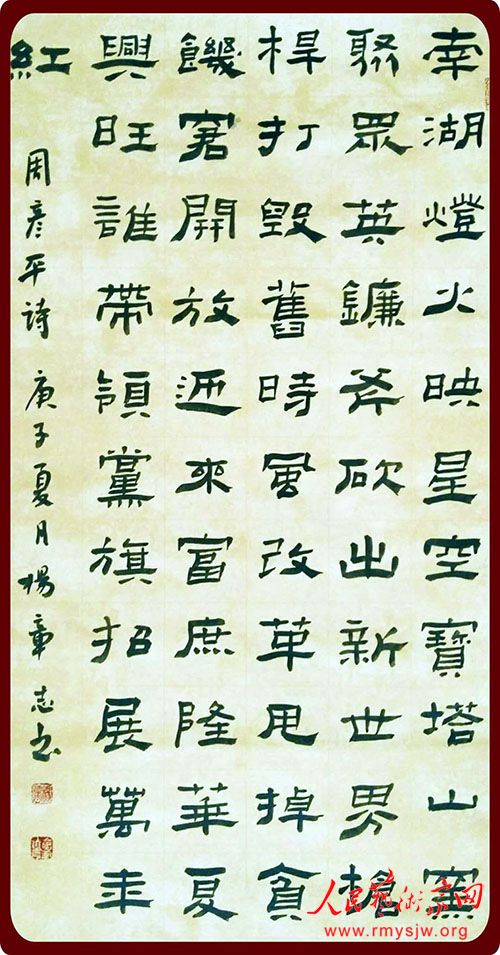 南湖燈火映星空寶塔山窯
聚眾英鐮斧砍出新世界槍
桿打毀舊時風改革甩掉貧
饑窘開放迎來富庶隆華夏
興旺誰帶領黨旗招展萬年
紅
周彥平詩 庚子夏月楊章志書
人民藝術家网
www.rmysjw.org